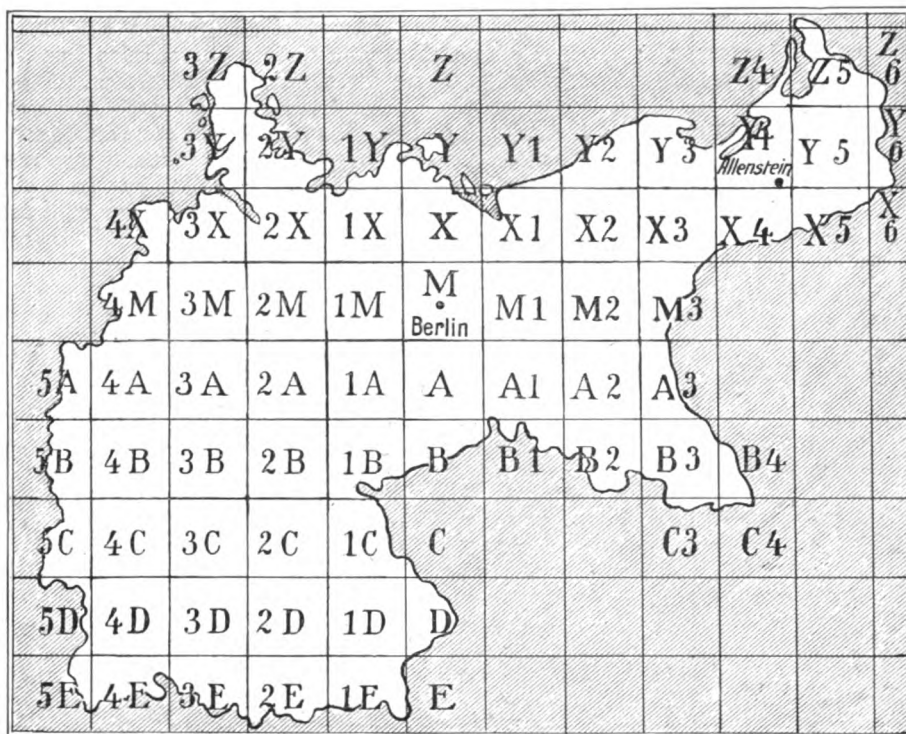 3Z 2Z Z Z4 Z5 Z6
3Y 2Y 1Y Y Y1 Y2 Y3 Y4 Y5 Y6
Allenstein
4X 3X 2X 1X X X1 X2 X3 X4 X5 X6
4M 3M 2M 1M M M1 M2 M3
Berlin
5A 4A 3A 2A 1A A A1 A2 A3
5B 4B 3B 2B 1B B B1 B2 B3 B4
5C 4C 3C 2C 1C C C3 C4
5D 4D 3D 2D 1D D
5E 4E 3E 2E 1E E